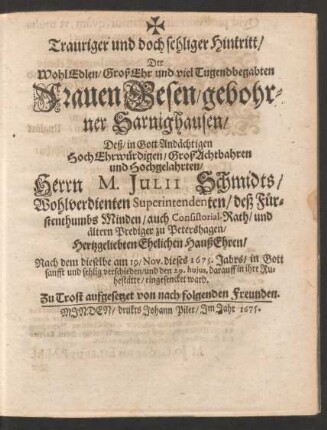 Trauriger und doch sehliger Hintritt/
Der
WohlEdlen/ GroßEhr und viel Tugendbegabten
Frauen Gesen/ gebohr-
ner Harnighausen/
Deß/ in Gott Andächtigen
HochEhrwürdigen/ GroßAchtbahren
und Hochgelahrten/
Herrn M. JULII Schmidts/
Wohlverdienten Superintendenten/ deß Für-
stenthumbs Minden/ auch Consistorial-Rath/ und
ältern Prediger zu Petershagen/
Hertzgeliebten Ehelichen HaußEhren/
Nach dem dieselbe am 19/ Nov. dieses 1675. Jahrs/ in Gott
sanfft und sehlig verschieden/ und den 29. hujus, darauff in ihre Ru-
hestätte/ eingesencket ward.
Zu Trost auffgesetzet von nach folgenden Freunden.
MINDEN/ druckts Johann Piler/ Im Jahr 1675.